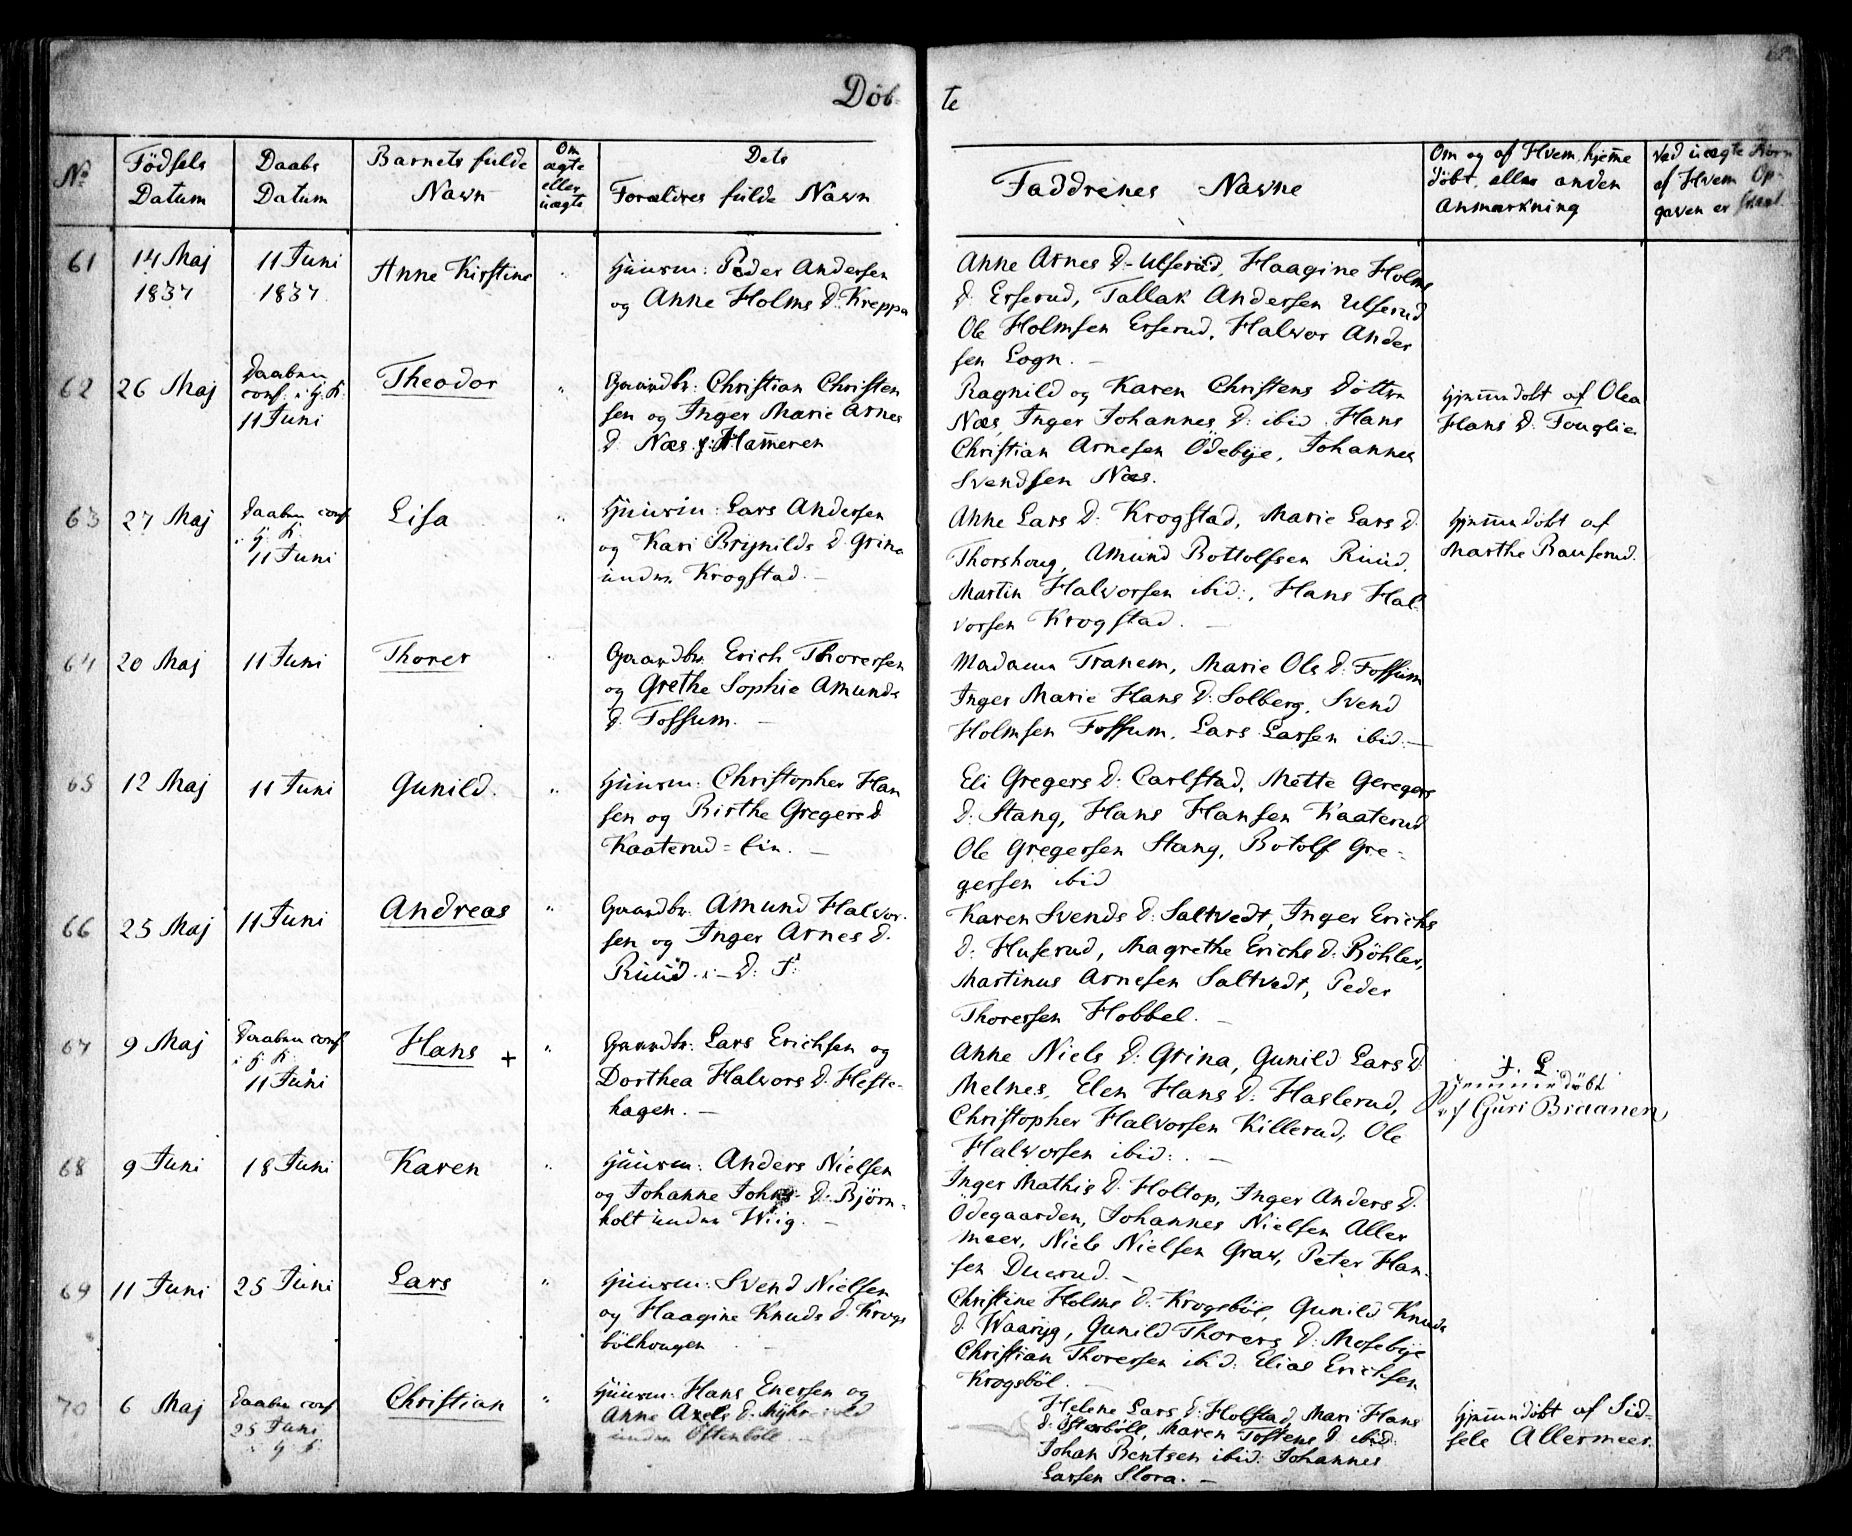 Döb-
te
68
No
Födsels Datum
Daabs Datum
Barnets fulde Navn
Om ægte eller uægte
Dets Forældres fulde Navn
Faddrenes Navne
Om og af Hvem hjemedöbt, eller anden Anmærkning
Ved uægte Börn af Hvem Opgaven er skeet
61
14 Maj 1837
11 Juni 1837
Anne Kirstine
"
Huusm: Peder Andersen
og Anne Holms D. Kreppa
Anne Arnes D- Ulserud, Haagine Holms
D. Erserud, Tallak Andersen Ulserud
Ole Holmsen Erserud, Halvor Ander
sen Sogn. -
62
26 Maj
Daaben
conf. i H. K.
11 Juni
Theodor
"
Gaardbr: Christian Christen
sen og Inger Marie Arnes
D. Næs Hameren
Ragnild og Karen Christens Döttre
Næs, Inger Johannes D: ibid Hans
Christian Arnesen Ödebye, Johannes
Svendsen Næs.
Hjemedöbt af Olea
Hans D. Fouglie
63
27 Maj
Daaben conf
i H. K.
11 Juni
Lisa
"
Huusm: Lars Andersen
og Kari Brynilds D. Grina
under Krogstad. -
Anne Lars D: Krogstad, Marie Lars D.
Thorshoug, Amund Bottolfsen Ruud,
Martin Halvorsen ibid:, Hans Hal-
vorsen Krogstad. -
Hjemedöbt af
Marthe Rauserud.
64
20 Maj
11 Juni
Thorer
"
Gaardbr. Erich Thorersen
og Grethe Sophie Amunds
D. Fossum. -
Madame Tranem, Marie Ols D: Fossum
Inger Marie Hans D: Solberg, Svend
Holmsen Fossum, Lars Larsen ibid: -
65
12 Maj
11 Juni
Gunild.
"
Huusm: Christopher Han
sen og Birthe Gregers D
Kaaterud = Ein. -
Eli Gregers D: Carlstad, Mette Geregers
D: Stang, Hans Hansen Kaaterud
Ole Gregersen Stang, Botolf Gre-
gersen ibid
66
25 Maj
11 Juni
Andreas
"
Gaardbr. Amund Halvor-
sen og Inger Arnes D.
Ruud. i - D: T:
Karen Svends D: Saltvedt, Inger Erichs
D: Huserud, Magrethe Erichs D: Böhler,
Martinus Arnesen Saltvedt, Peder
Thoresen Hobbel. -
67
9 Maj
Daaben conf
i H. K.
11 Juni
Hans +
"
Gaardbr: Lars Erichsen og
Dorthea Halvors D: Heste-
hagen. -
Anne Niels D: Grina, Gunild Lars D
Melnes, Elen Hans D: Haslerud,
Christopher Halvorsen Killerud, Ole
Halvorsen ibid: . -
Hjemmedöbt
af Guri Braanen,
68
9 Juni
18 Juni
Karen
"
Huusm: Anders Nielsen
og Johanne Johns D: Björn-
holt under Wiig. -
Inger Mathis D. Holtop, Inger Anders D.
Ödegaarden, Johannes Nielsen Aller
meer, Niels Nielsen Grav, Peter Han-
sen Duerud. -
69
11 Juni
25 Juni
Lars
"
Huusm: Svend Nielsen
og Haagine Knuds D. Krogs
bölhougen
Christine Holms D. Krogsböl, Gunild Knuds
D. Waaryg, Gunild Thorers D: Mosebye
Christian Thoresen ibid: Elias Erichsen
Krogsböl. -
70
6 Maj
Daaben conf
25 Juni
i H K
Christian
"
Huusm: Hans Enersen og
Anne Axels D.
under Östenböll. -
Helene Lars D: Holstad, Mari Hans
D. Östenböll, Maren Tostens D ibid:
Johan Bentsen ibid: Johannes
Larsen Slora. -
Hjemedöbt af Sid-
sele Allermeer.